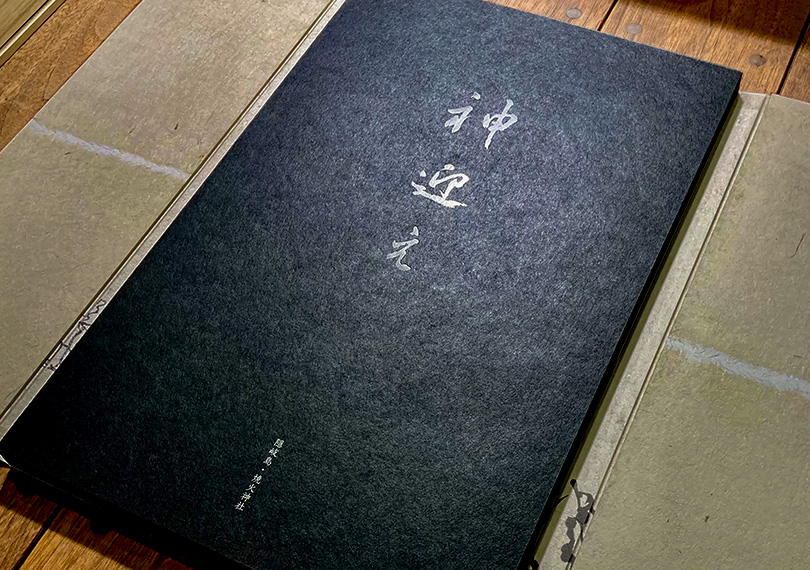 神迎え
隠岐島・焼火神社